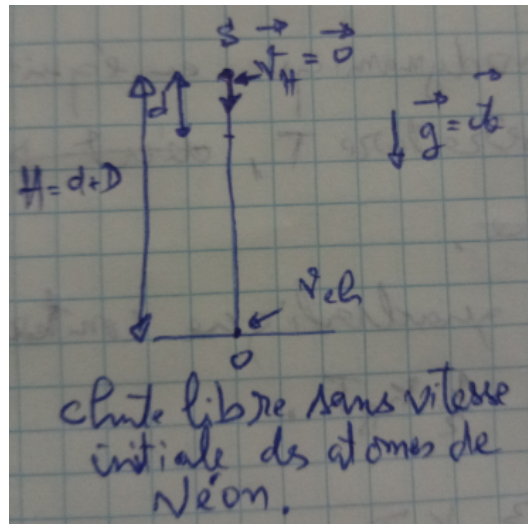 S
v⃗_H = 0⃗
d
H = d + D
g⃗ = c⃗te
v_ch
O
chute libre sans vitesse
initiale des atomes de
Néon.